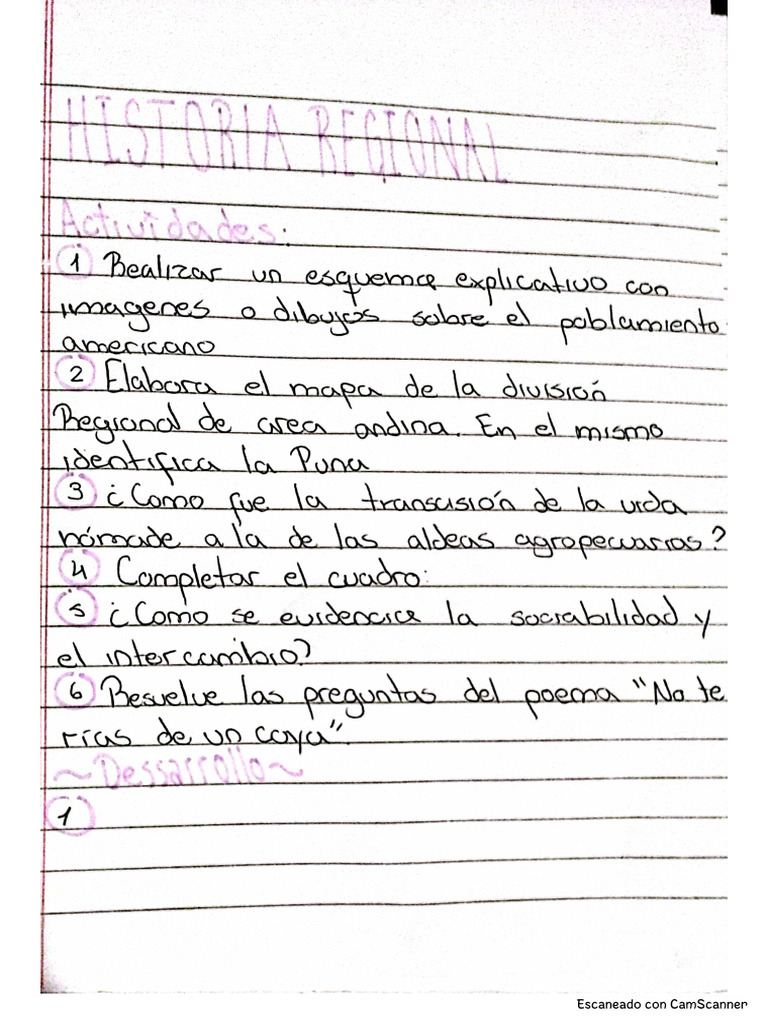 HISTORIA REGIONAL
Actividades:
1 Realizar un esquema explicativo con
imagenes o dibujos sobre el poblamiento
americano
2 Elabora el mapa de la división
Regional de area andina. En el mismo
identifica la Puna
3 ¿Como fue la transcisión de la vida
nómade a la de las aldeas agropecuarias?
4 Completar el cuadro:
5 ¿Como se evidencia la sociabilidad y
el intercambio?
6 Resuelve las preguntas del poema "No te
rías de un coya".
~Dessarrollo~
1
Escaneado con CamScanner